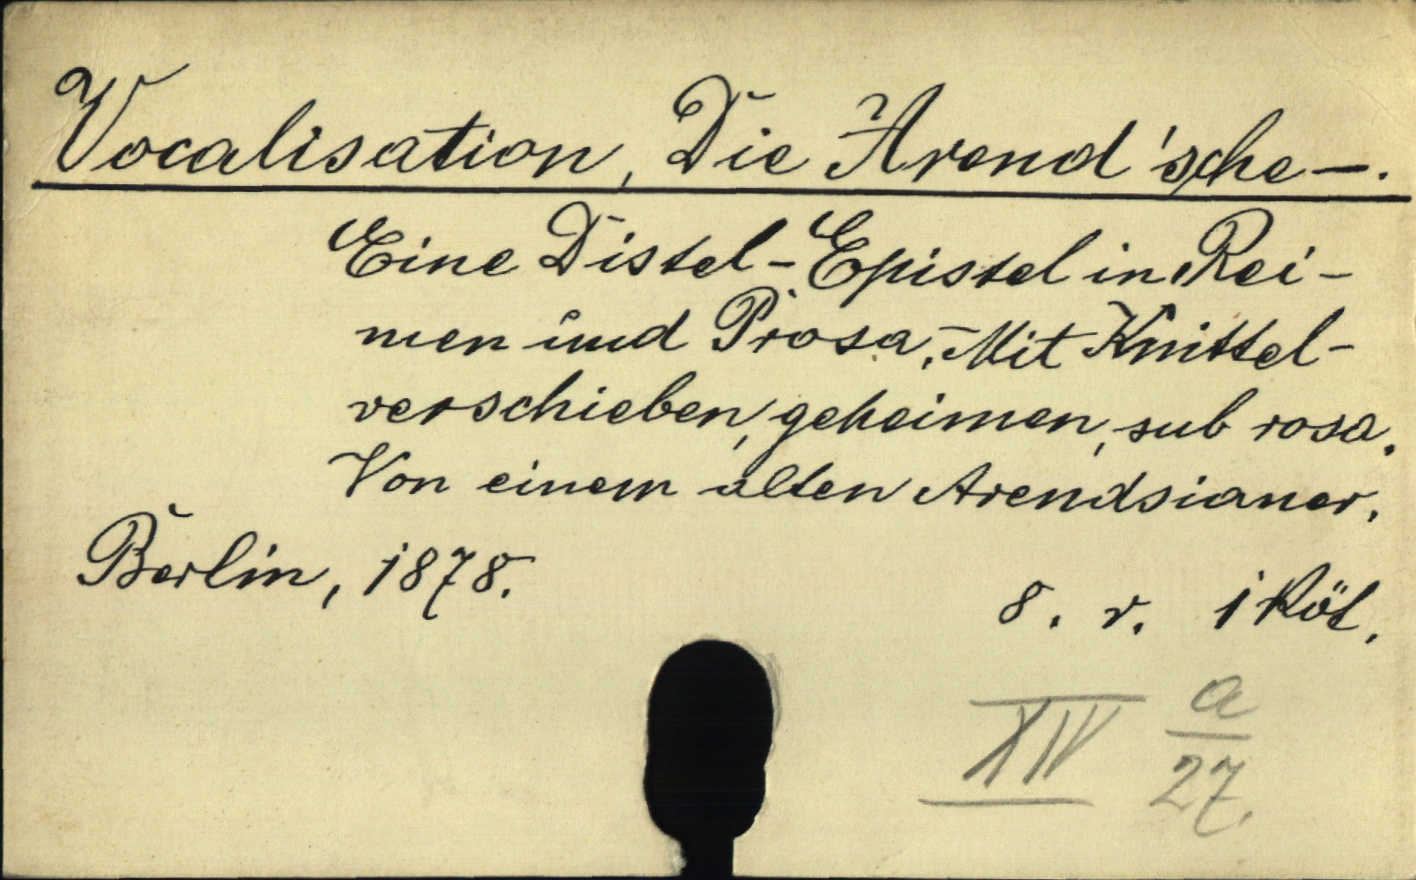 Vocalisation, Die Arend'sche –.
Eine Distel-Epistel in Rei-
men und Prosa, Mit Knittel-
verschieben, geheimen, sub rosa.
Von einem alten Arendsianer.
Berlin, 1878.
8. r. 1 Köt.
XIV a
27.